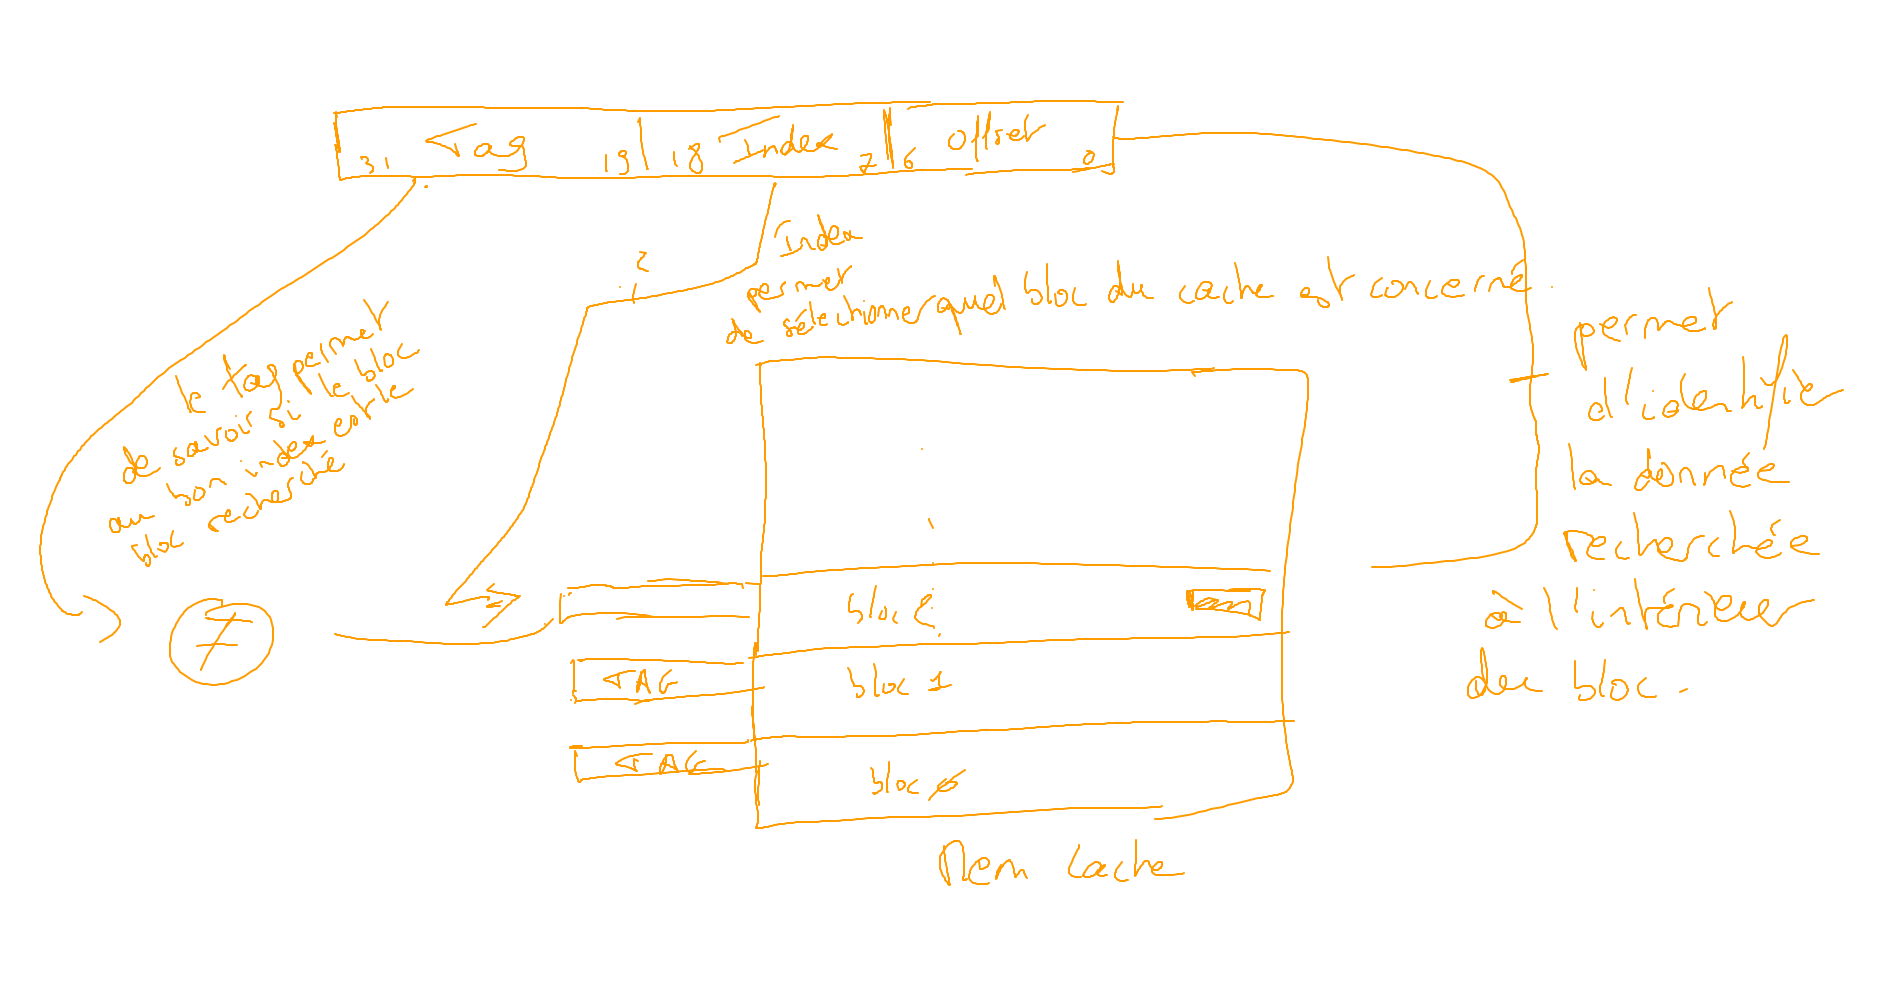 31 Tag 19 18 Index 7 6 Offset 0
2
Index
permet
de sélectionner quel bloc du cache est concerné.
le tag permet
de savoir si le bloc
au bon index est le
bloc recherché
permet
d'identifier
la donnée
recherchée
à l'intérieur
du bloc.
bloc 2
TAG bloc 1
TAG bloc 0
Mem Cache